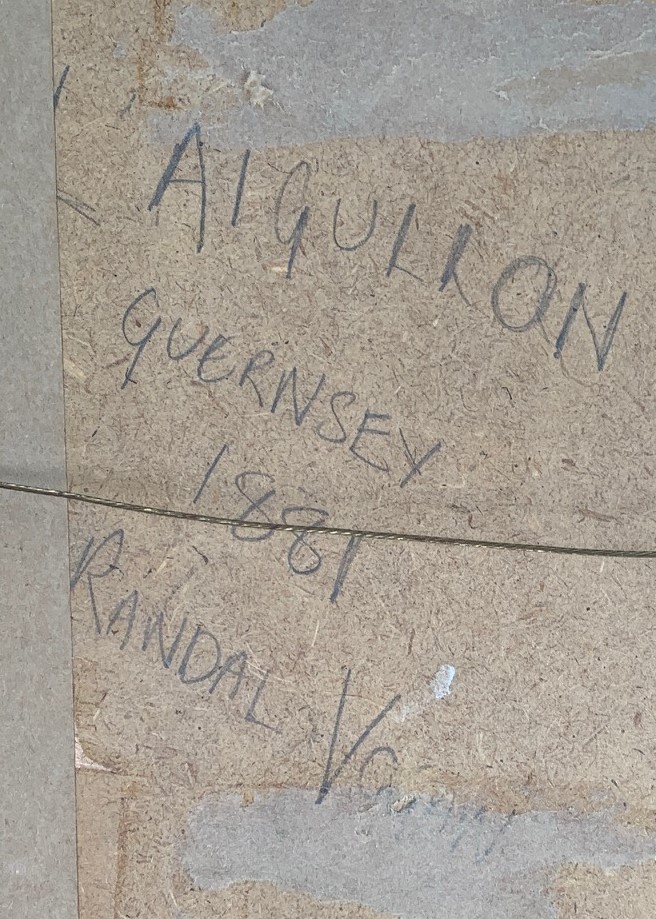 AIGULLON
GUERNSEY
1881
RANDAL